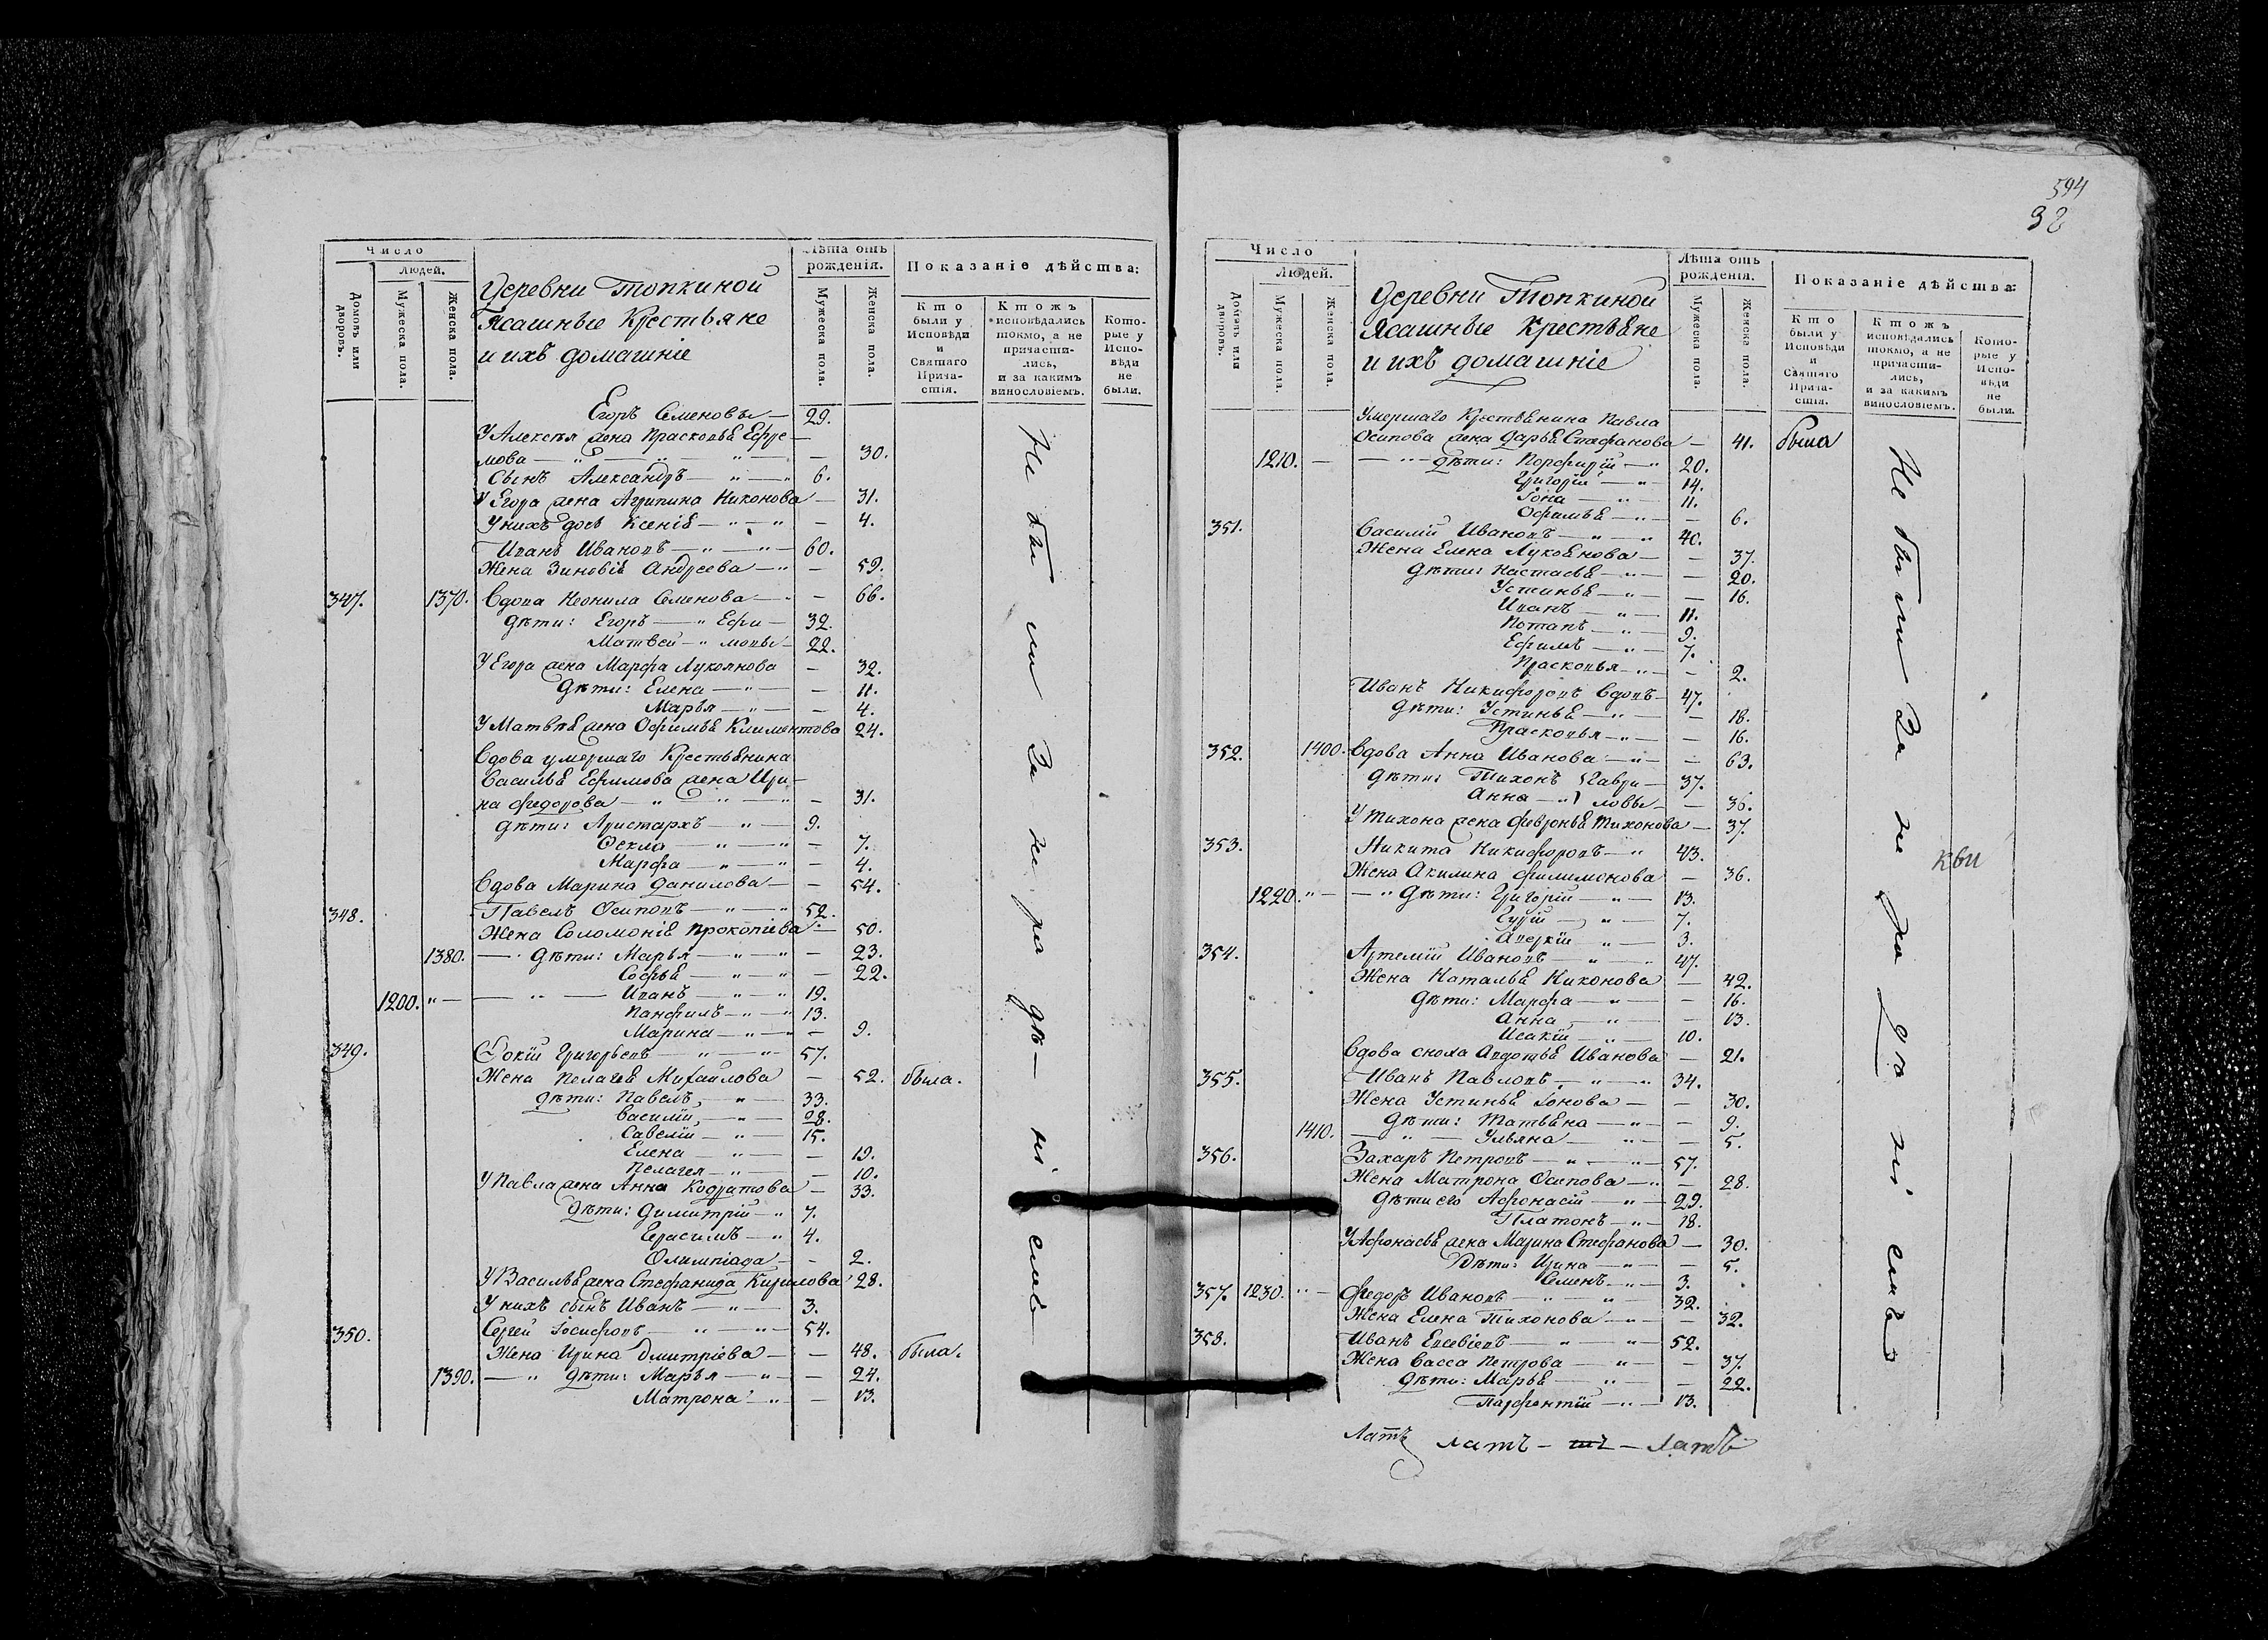 Число
Людей.
Домовъ или дворовъ.
Мужеска пола.
Женска пола.
Деревни Топкиной
Ясашные Крестьяне
и ихъ домашніе
Лѣта отъ рожденія.
Мужеска пола.
Женска пола.
Показаніе дѣйства:
Кто были у Исповѣди и Святаго Прича-стія.
Ктожъ исповѣдались токмо, а не причасти-лись, и за какимъ винословіемъ.
Кото-рые у Испо-вѣди не были.
Егоръ Семеновы — 29.
У Алексѣя жена Прасковья Ефре-
мова — 30.
Сынъ Александръ — 6.
У Егора жена Агрипина Никонова — 31.
У нихъ дочь Ксенія — 4.
Иванъ Ивановъ — 60.
Жена Зиновія Андреева — 59.
347. 1370. Вдова Неонила Семенова — 66.
Дѣти: Егоръ — Ефи — 32.
Матвей — мовы — 22.
У Егора жена Марфа Лукоянова — 32.
Дѣти: Елена — 11.
Марья — 4.
У Матвѣя жена Офимья Климентова 24.
Вдова умершаго Крестьянина
Василья Ефимова жена Ири-
на Федорова — 31.
Дѣти: Аристархъ — 9.
Фекла — 7.
Марфа — 4.
Вдова Марина Данилова — 54.
348. Павелъ Осиповъ — 52.
Жена Соломонія Прокопіева — 50.
1380. — Дѣти: Марья — 23.
Софья — 22.
1200. — Иванъ — 19.
Панфилъ — 13.
Марина — 9.
349. Григорьевъ — 57.
Жена Пелагея Михаилова — 52. была.
Дѣти: Павелъ — 33.
Василій — 28.
Савелій — 15.
Елена — 19.
Пелагея — 10.
У Павла жена Анна Кодратова — 33.
Дѣти: Димитрій — 7.
Герасимъ — 4.
Олимпіада — 2.
У Василья жена Стефанида Кирилова 28.
У нихъ сынъ Иванъ — 3.
350. Сергей Іосифовъ — 54.
Жена Ирина Дмитріева — 48. была.
1390. — Дѣти: Марья — 24.
Матрона — 13.
Не были За не ра дѣ — ні емъ
594
32
Число
Людей.
Домовъ или дворовъ.
Мужеска пола.
Женска пола.
Деревни Топкиной
Ясашные Крестьяне
и ихъ домашніе
Лѣта отъ рожденія.
Мужеска пола.
Женска пола.
Показаніе дѣйства:
Кто были у Исповѣди и Святаго Прича-стія.
Ктожъ исповѣдались токмо, а не причасти-лись, и за какимъ винословіемъ.
Кото-рые у Испо-вѣди не были.
Умершаго Крестьянина Павла
Осипова жена Дарья Стефанова — 41. была
1210. — Дѣти: Порфирій — 20.
Григорій — 14.
Іона — 11.
Офимья — 6.
351. Василій Ивановъ — 40.
Жена Елена Лукоянова — 37.
Дѣти: Настасья — 20.
Устинья — 16.
Иванъ — 11.
Потапъ — 9.
Ефимъ — 7.
Прасковья — 2.
Иванъ Никифоровъ Вдовъ — 47.
Дѣти: Устинья — 18.
Прасковья — 16.
352. 1400. Вдова Анна Иванова — 63.
Дѣти: Тихонъ Гаври — 37.
Анна — ловы — 36.
У Тихона жена Февронья Тихонова — 37.
353. Никита Никифоровъ — 43.
Жена Акилина Филимонова — 36.
1220. — Дѣти: Григорій — 13.
Гурій — 7.
Аверкій — 3.
354. Артемій Ивановъ — 47.
Жена Наталья Никонова — 42.
Дѣти: Марфа — 16.
Анна — 13.
Исакій — 10.
Вдова сноха Авдотья Иванова — 21.
355. Иванъ Павловъ — 34.
Жена Устинья Іонова — 30.
Дѣти: Татьяна — 9.
1410. — Ульяна — 5.
356. Захаръ Петровъ — 57.
Жена Матрона Осипова — 28.
Дѣти его Афонасій — 29.
Платонъ — 18.
У Афонасья жена Марина Стефанова — 30.
Дѣти: Ирина — 5.
Семенъ — 3.
357. 1230. — Федоръ Ивановъ — 32.
Жена Елена Тихонова — 32.
358. Иванъ Евсевіевъ — 52.
Жена Васса Петрова — 37.
Дѣти: Марья — 22.
Парфентій — 13.
Не были За не ра дѣ ні емъ